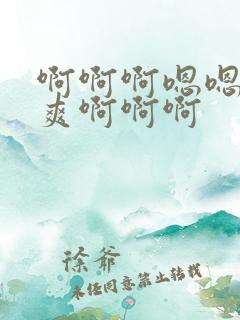 啊啊啊嗯嗯
爽啊啊啊
徐爷
未经同意禁止转载